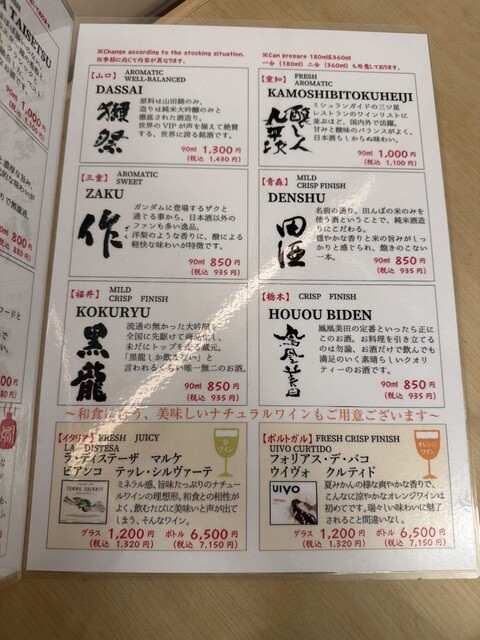 ※Change according to the stocking situation.
※季節に応じて内容が異なります。
※Can prepare 180ml&360ml
一合(180ml) 二合(360ml)も用意しております。
【山口】 AROMATIC
WELL-BALANCED
DASSAI
獺祭
原料は山田錦のみ、
造りは純米大吟醸のみと
徹底された酒造り。
世界のVIPが声を揃えて絶賛
する、世界に誇る銘酒です。
90ml 1,300円
(税込 1,430円)
【愛知】 FRESH
AROMATIC
KAMOSHIBITOKUHEIJI
醸し人九平次
ミシュランガイドの三ツ星
レストランのワインリストに
並ぶほど、国内外で活躍。
甘みと酸味のバランスがよく、
日本酒らしからぬ味わい。
90ml 1,000円
(税込 1,100円)
【三重】 AROMATIC
SWEET
ZAKU
作
ガンダムに登場するザクと
通じる事から、日本酒以外の
ファンも多い逸品。
洋梨のような香りに、酸による
軽快な味わいが特徴です。
90ml 850円
(税込 935円)
【青森】 MILD
CRISP FINISH
DENSHU
田酒
名前の通り、田んぼの米のみを
使う酒ということで、純米酒造
りにこだわる。
穏やかな香りと米の旨みがしっ
かりと感じられ、飽きのこない
一本。
90ml 850円
(税込 935円)
【福井】 MILD
CRISP FINISH
KOKURYU
黒龍
流通の無かった大吟醸を
全国に先駆けて商品化し、
未だにトップを走る蔵元。
「黒龍しか飲まない」と
言われるくらい唯一無二のお酒。
90ml 850円
(税込 935円)
【栃木】 CRISP FINISH
HOUOU BIDEN
鳳凰美田の定番といったら正に
このお酒。お料理を引き立てる
のは勿論、お酒だけで飲んでも
満足のいく素晴らしいクオリ
ティーのお酒です。
90ml 850円
(税込 935円)
～和食に合う、美味しいナチュラルワインもご用意ございます～
【イタリア】 FRESH JUICY
LA DISTESA
ラ・ディステーザ マルケ
ビアンコ テッレ・シルヴァーテ
ミネラル感、旨味たっぷりのナチュー
ルワインの理想形。和食との相性が
よく、飲むたびに美味いと声が出て
しまう、そんなワイン。
グラス 1,200円 ボトル 6,500円
(税込 1,320円) (税込 7,150円)
【ポルトガル】 FRESH CRISP FINISH
UIVO CURTIDO
フォリアス・デ・バコ
ウイヴォ クルテイド
オレンジ
ワイン
UIVO
夏みかんの様な爽やかな香りで、
こんなに涼やかなオレンジワインは
初めてです。瑞々しい味わいに魅了
されること間違いなし。
グラス 1,200円 ボトル 6,500円
(税込 1,320円) (税込 7,150円)